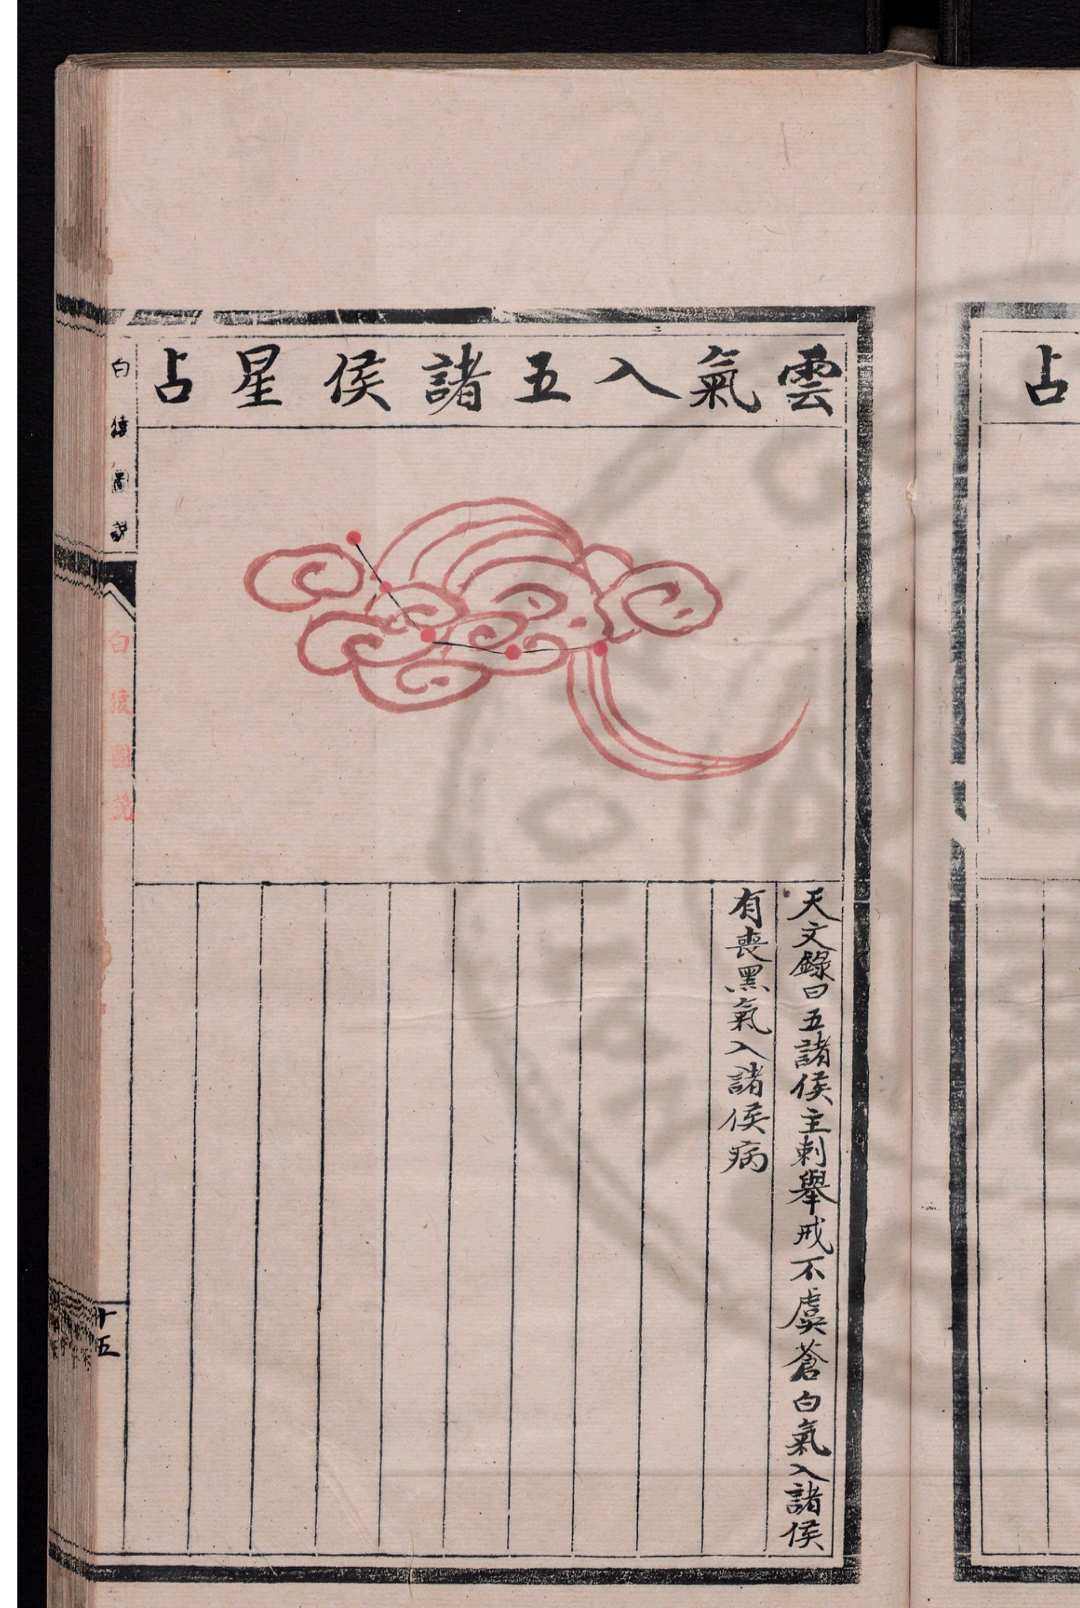 雲氣入五諸侯星占
天文錄曰五諸侯主刺舉戒不虞蒼白氣入諸侯
有喪黑氣入諸侯病
十五
占